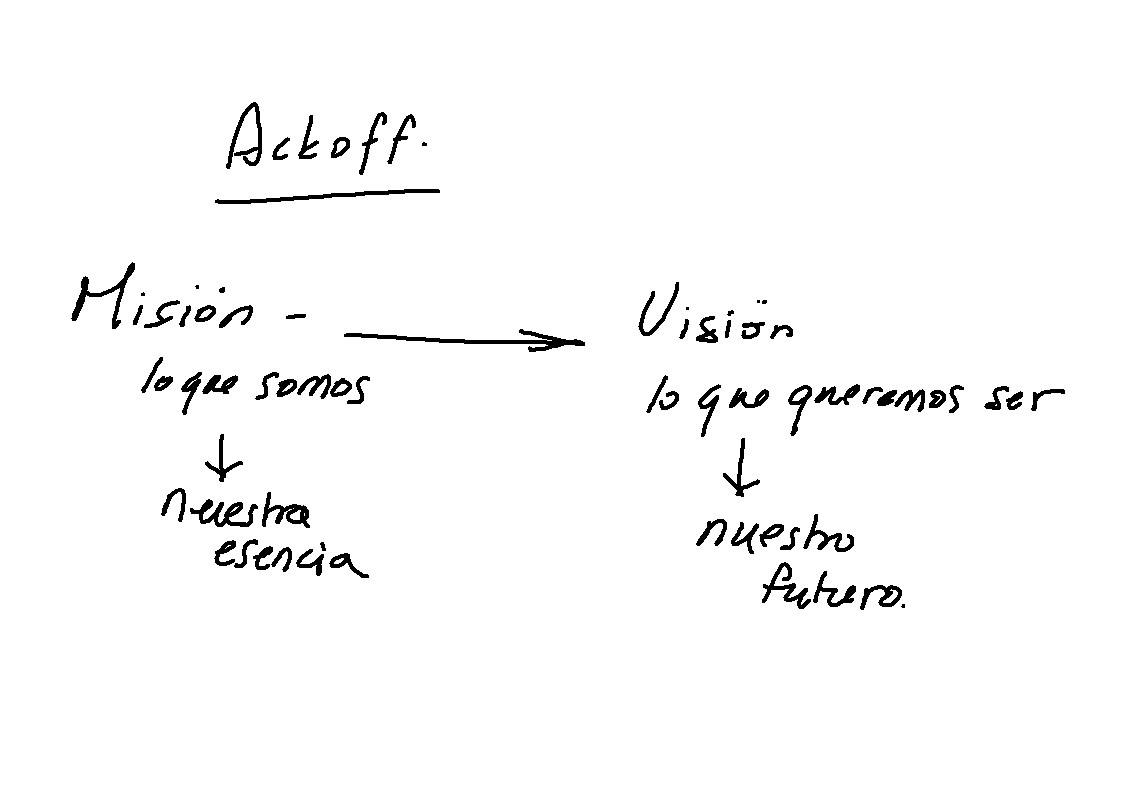 Ackoff.
Misión -
lo que somos
nuestra
esencia
Visión
lo que queremos ser
nuestro
futuro.